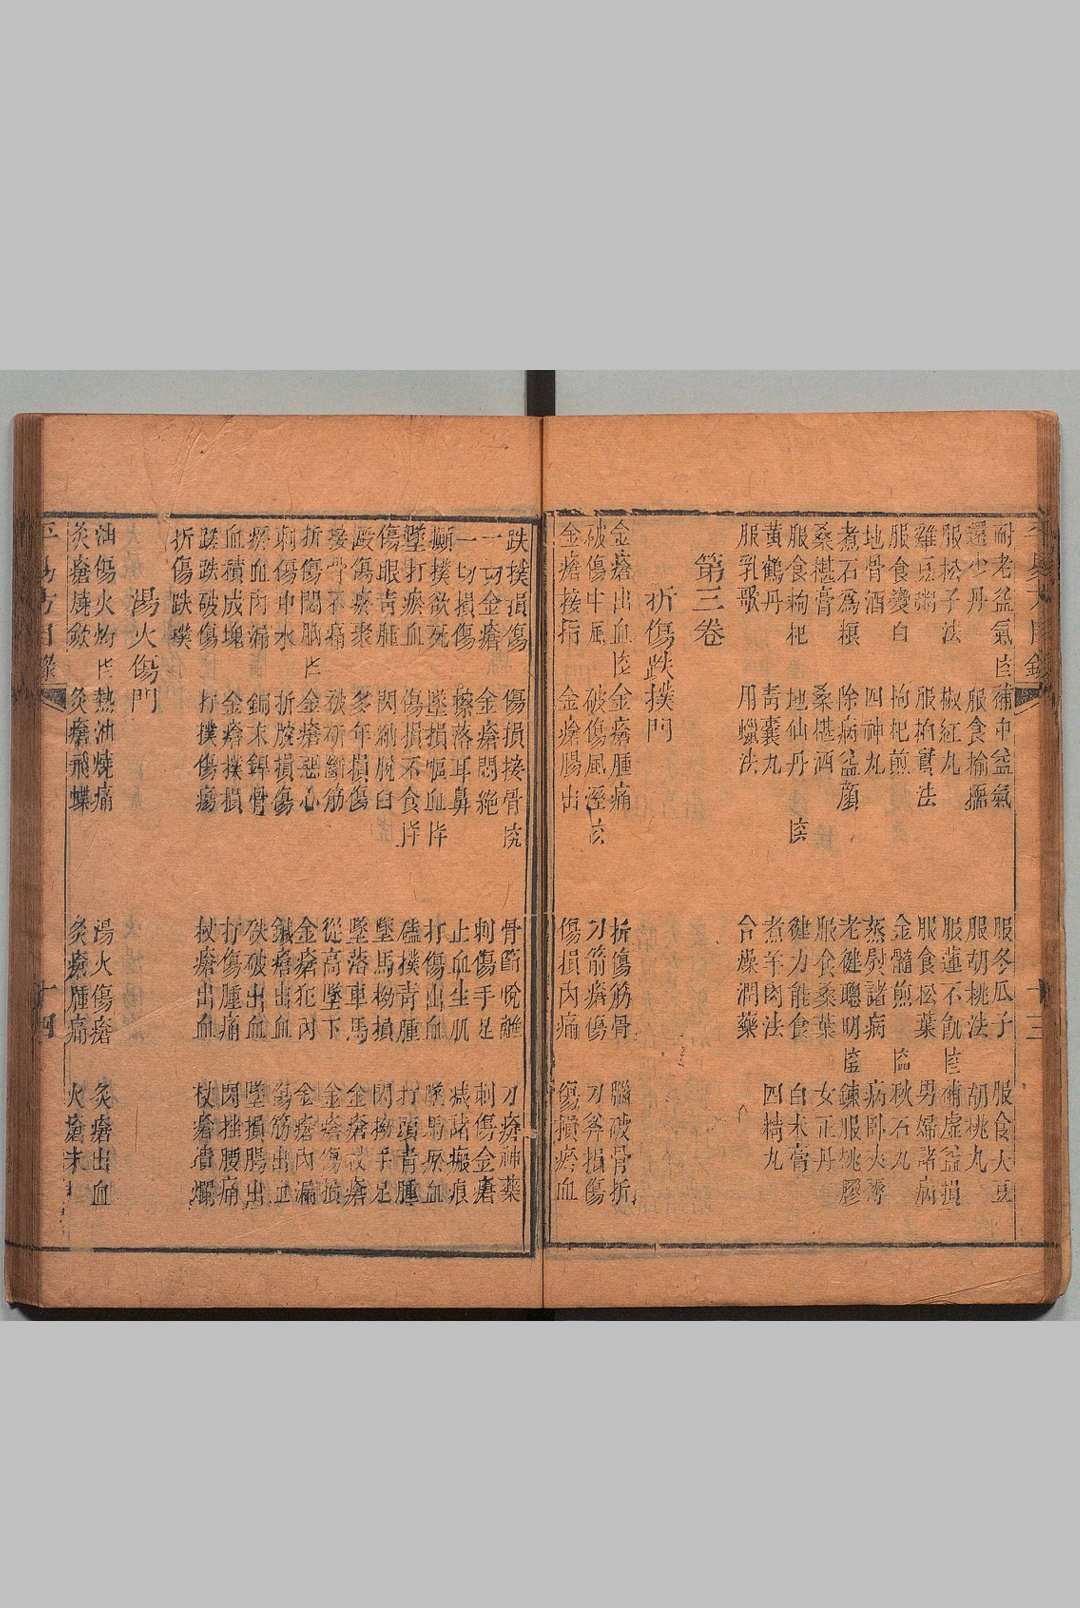 耐老益氣 補中益氣 服冬瓜子 服食大豆
還少丹 服食榆 服胡桃法 胡桃九
服松子法 椒紅丸 服蓮不飢 補虛益損
雜豆粥 服柏實法 服食松葉 男婦諸病
服食變白 枸杞煎 金髓煎 秋石丸
地骨酒 四神丸 蒸熨諸病 病臥夾薄
煮石為粮 除病益顏 老健聰明 鍊服桃膠
桑椹膏 桑椹酒 服食桑葉 女正丹
服食枸杞 地仙丹 健力能食 白朮膏
黃鶴丹 靑囊丸 煮羊肉法 四精丸
服乳歌 用蠟法 合燥潤藥
第三卷
折傷跌撲門
金瘡出血 金瘡腫痛 折傷筋骨 腦破骨折
破傷中風 破傷風溼 刀箭瘡傷 刀斧損傷
金瘡接指 金瘡腸出 傷損內痛 傷損瘀血
十三
跌撲損傷 傷損接骨 骨斷脫離 刀瘡神藥
一切金瘡 金瘡悶絶 刺傷手足 刺傷金瘡
一切損傷 擦落耳鼻 止血生肌 滅諸瘢痕
攧撲欲死 墜損嘔血 打傷出血 墜馬瘀血
墜打瘀血 傷損不食 磕撲靑腫 打頭靑腫
傷眼靑腫 閃肭脫臼 墜馬拗損 閃拗手足
毆傷瘀聚 多年損傷 墜落車馬 金瘡
接骨不痛 破斫斷筋 從高墜下 金瘡傷損
折傷閉腦 金瘡惡心 金瘡犯內 金瘡內漏
刺傷中水 折腔損傷 鍼瘡出血 傷筋出血
瘀血內漏 銅末銲骨 砍破出血 墜損腸出
血積成塊 金瘡撲損 打傷腫痛 閃挫腰痛
跌破傷 打撲傷瘍 杖瘡出血 杖瘡潰爛
折傷跌撲
湯火傷門
油傷火灼 熱油燒痛 湯火傷瘡 灸瘡出血
灸瘡燒 灸瘡飛蝶 灸瘡腫痛 火瘡未
十四